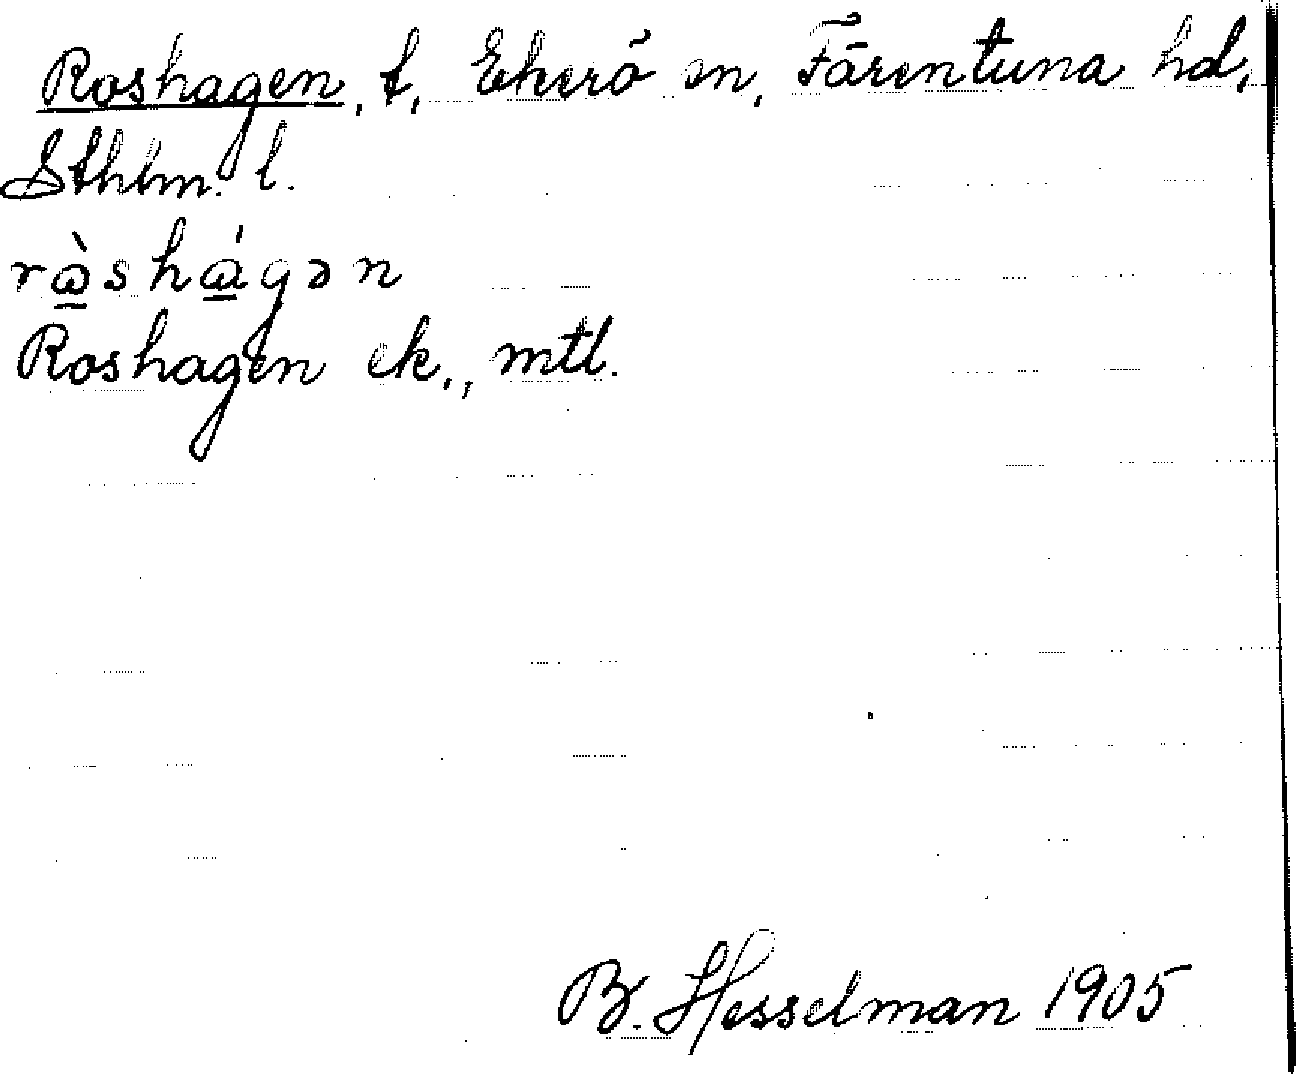 Roshagen, t, Ekerö sn, Färentuna hd,
Sthlm. l.
ràshágən
Roshagen ek., mtl.
B. Hesselman 1905